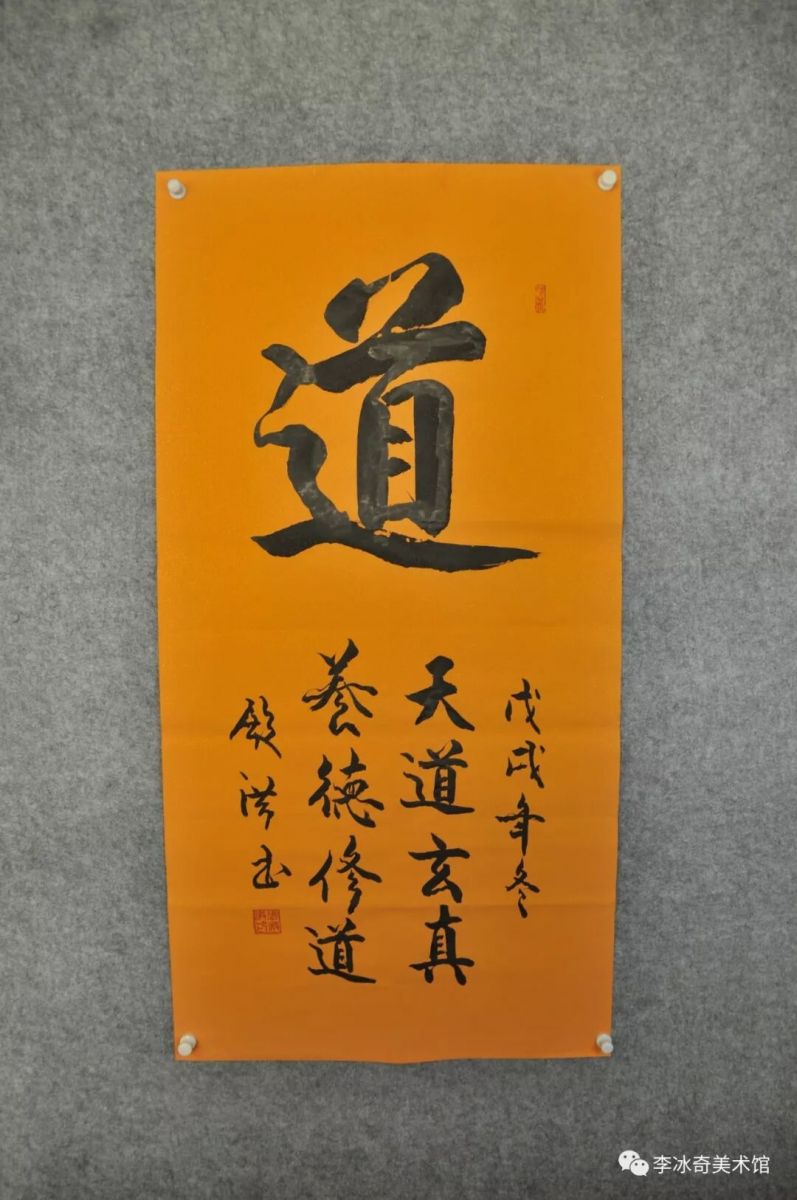 道
戊戌年冬
天道玄真
養德修道
殿洪书
李冰奇美术馆